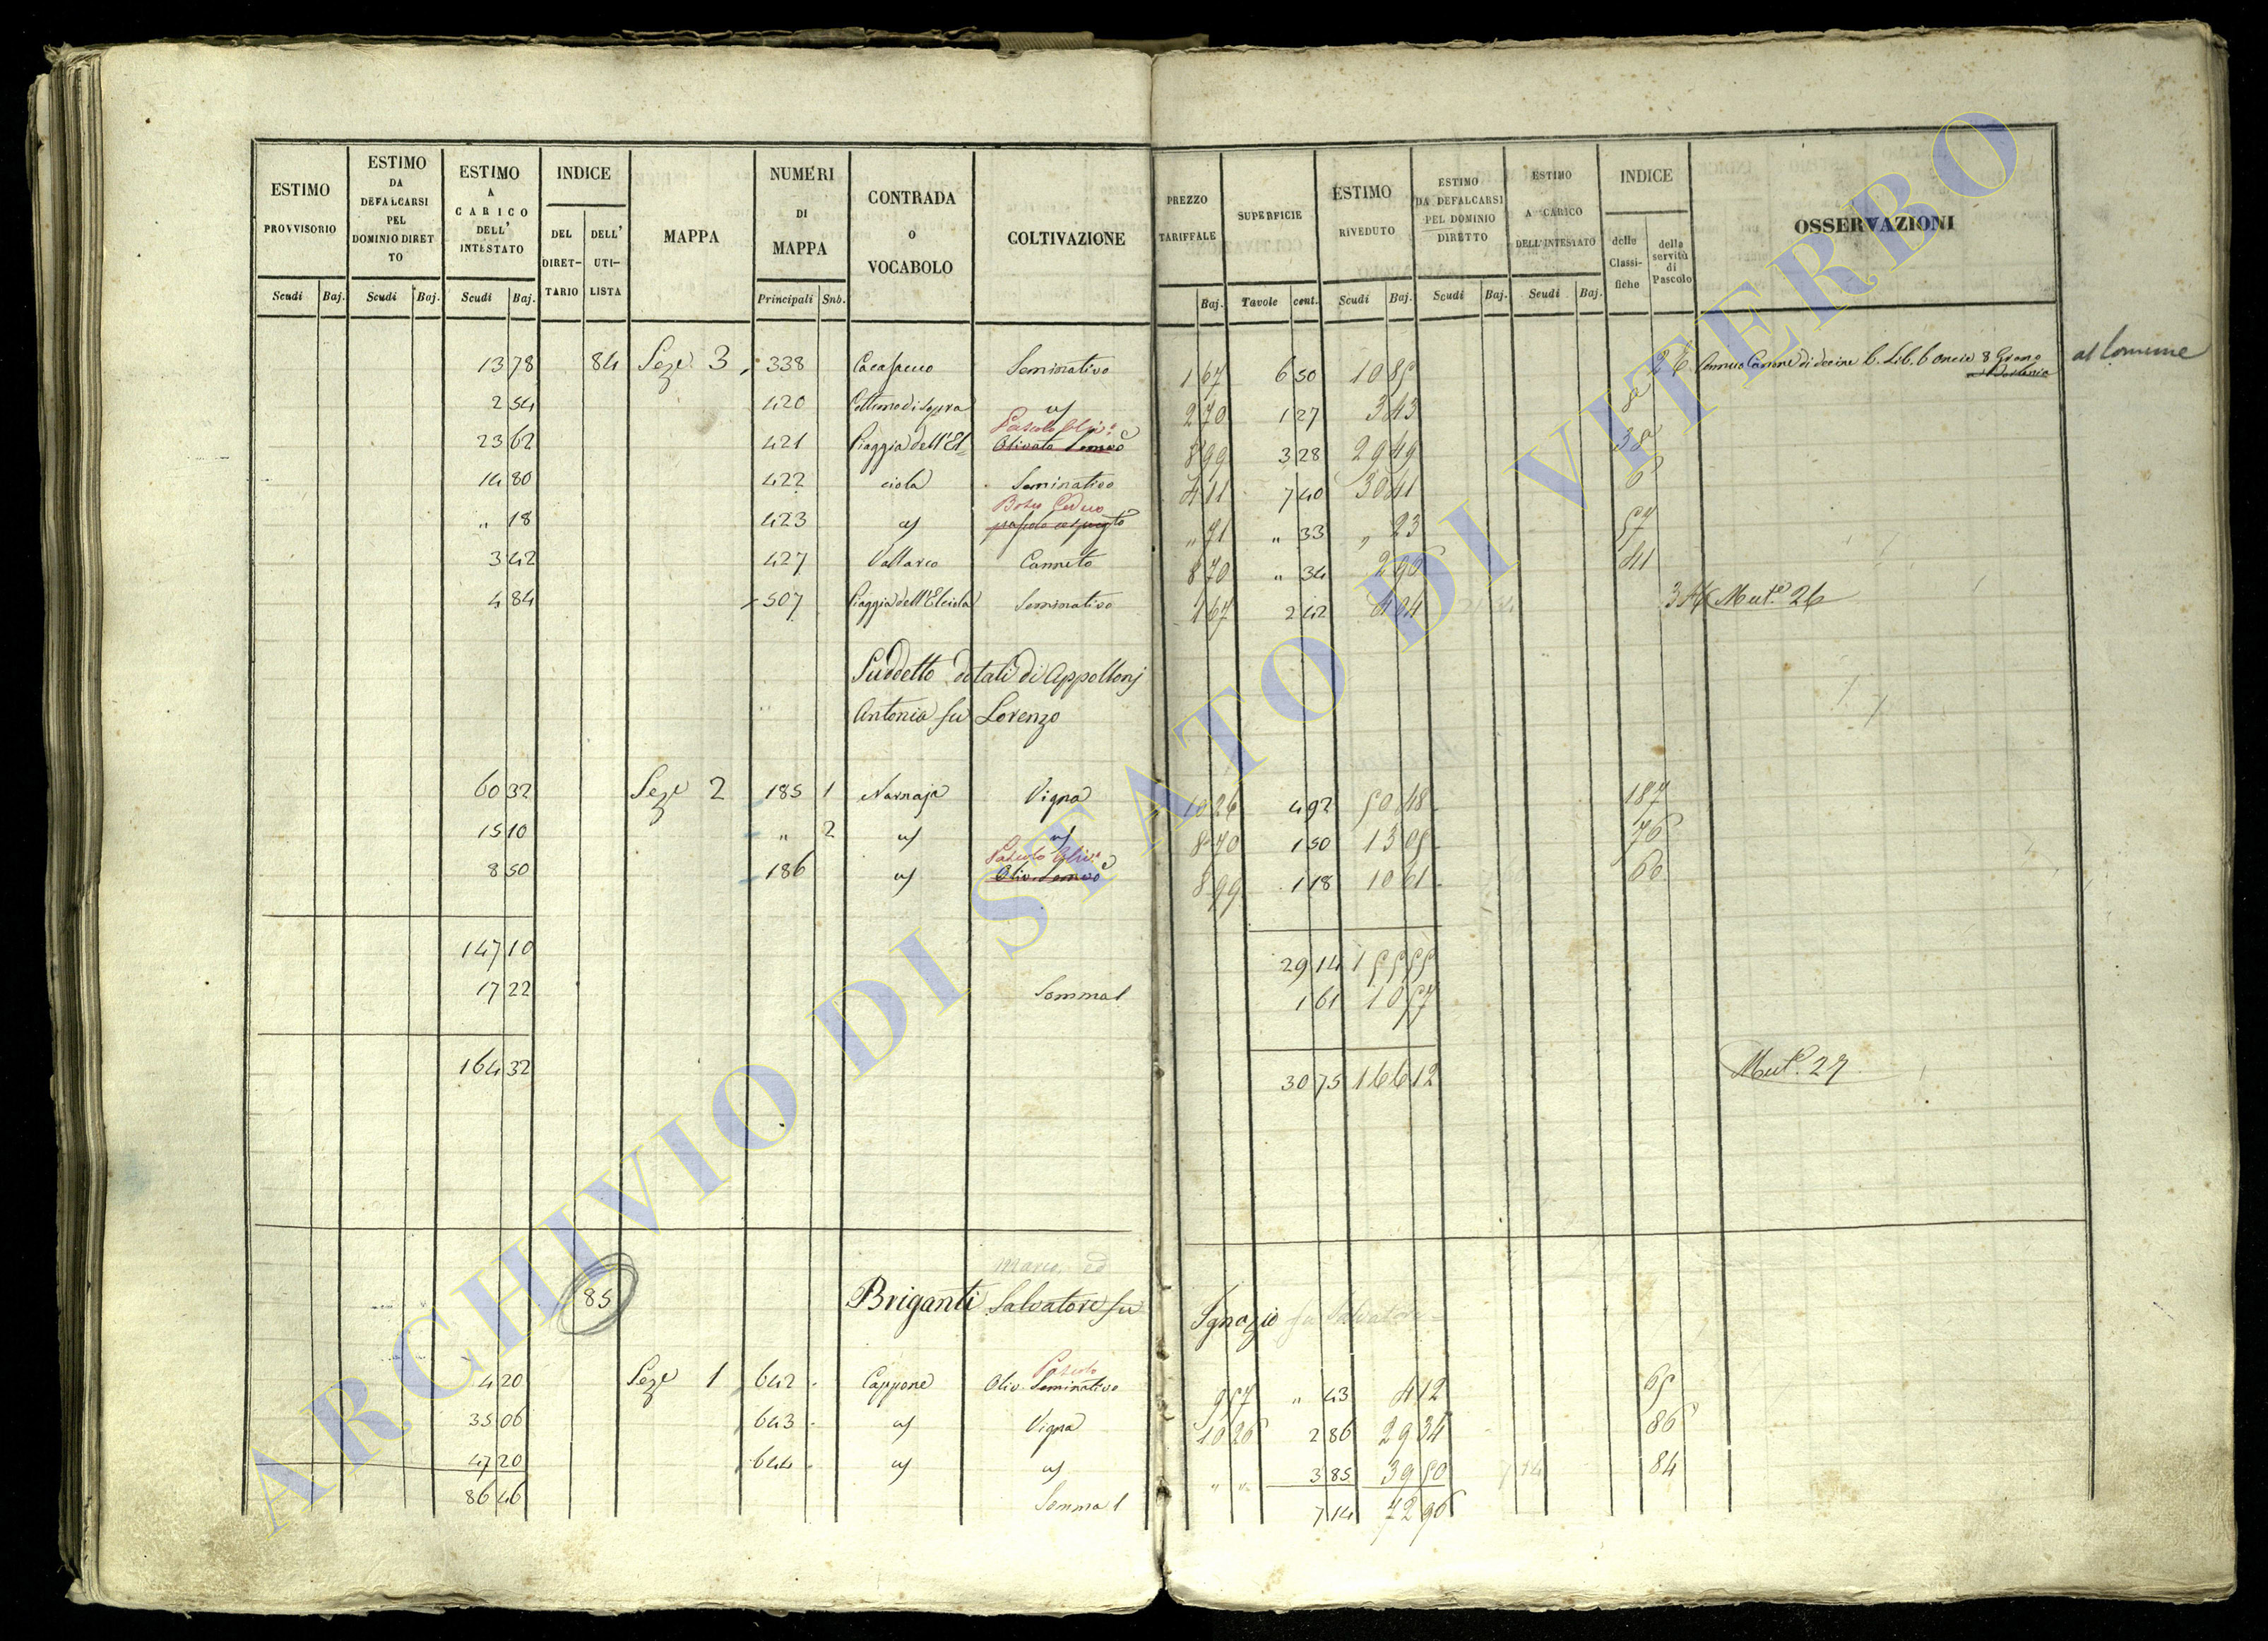 ESTIMO PROVVISORIO
ESTIMO DA DEFALCARSI PEL DOMINIO DIRETTO
ESTIMO A CARICO DELL' INTESTATO
INDICE
DEL DIRETTARIO
DELL' UTILISTA
MAPPA
NUMERI DI MAPPA
CONTRADA O VOCABOLO
COLTIVAZIONE
PREZZO TARIFFALE
SUPERFICIE
ESTIMO RIVEDUTO
ESTIMO DA DEFALCARSI PEL DOMINIO DIRETTO
ESTIMO A CARICO DELL'INTESTATO
INDICE
delle Classifiche
della servitù di Pascolo
OSSERVAZIONI
Scudi Baj. Scudi Baj. Scudi Baj. Principali Snb. Baj. Tavole cent. Scudi Baj. Scudi Baj. Scudi Baj.
13 78 84 Seze 3 338 Seminativo 1 67 6 50 10 85 2 Annuo Canone di decine 6. Lib. 6 oncie 8 Grano al Comune
2 54 420 Cottimo di sopra " 2 70 1 27 3 43 8
Pascolo Oliv.
23 62 421 Piaggia dell'El= Olivato Semivo 8 99 3 28 29 49 38
14 80 422 ciola Seminativo 4 11 7 40 30 41 6
Bosco Ceduo
" 18 423 " pascolo cespugto " 71 " 33 " 23 57
3 42 427 Vallarco Canneto 8 70 " 34 2 96 41
4 84 507 Piaggia dell'Elciola Seminativo 1 67 2 42 4 04 3 Mut. 26
Suddetto dotali di Appollonj
Antonia fu Lorenzo
60 32 Seze 2 185 1 Narnaja Vigna 10 26 4 92 50 48 187
15 10 " 2 " " 8 70 1 50 13 05 76
Pascolo Oliv.
8 50 186 " Oliv. Semivo 8 99 1 18 10 61 60
147 10 29 14 155 55
17 22 Somma 1 1 61 10 57
164 32 30 75 166 12 Mut. 27
Marco, ed
85 Briganti Salvatore fu Ignazio fu Salvatore
Pascolo
4 20 Seze 1 642 Cappone Oliv. Seminativo 9 57 " 43 4 12 65
35 06 643 " Vigna 10 26 2 86 29 34 86
47 20 644 " " " " 3 85 39 50 84
86 46 Somma 1 7 14 72 96
ARCHIVIO DI STATO DI VITERBO